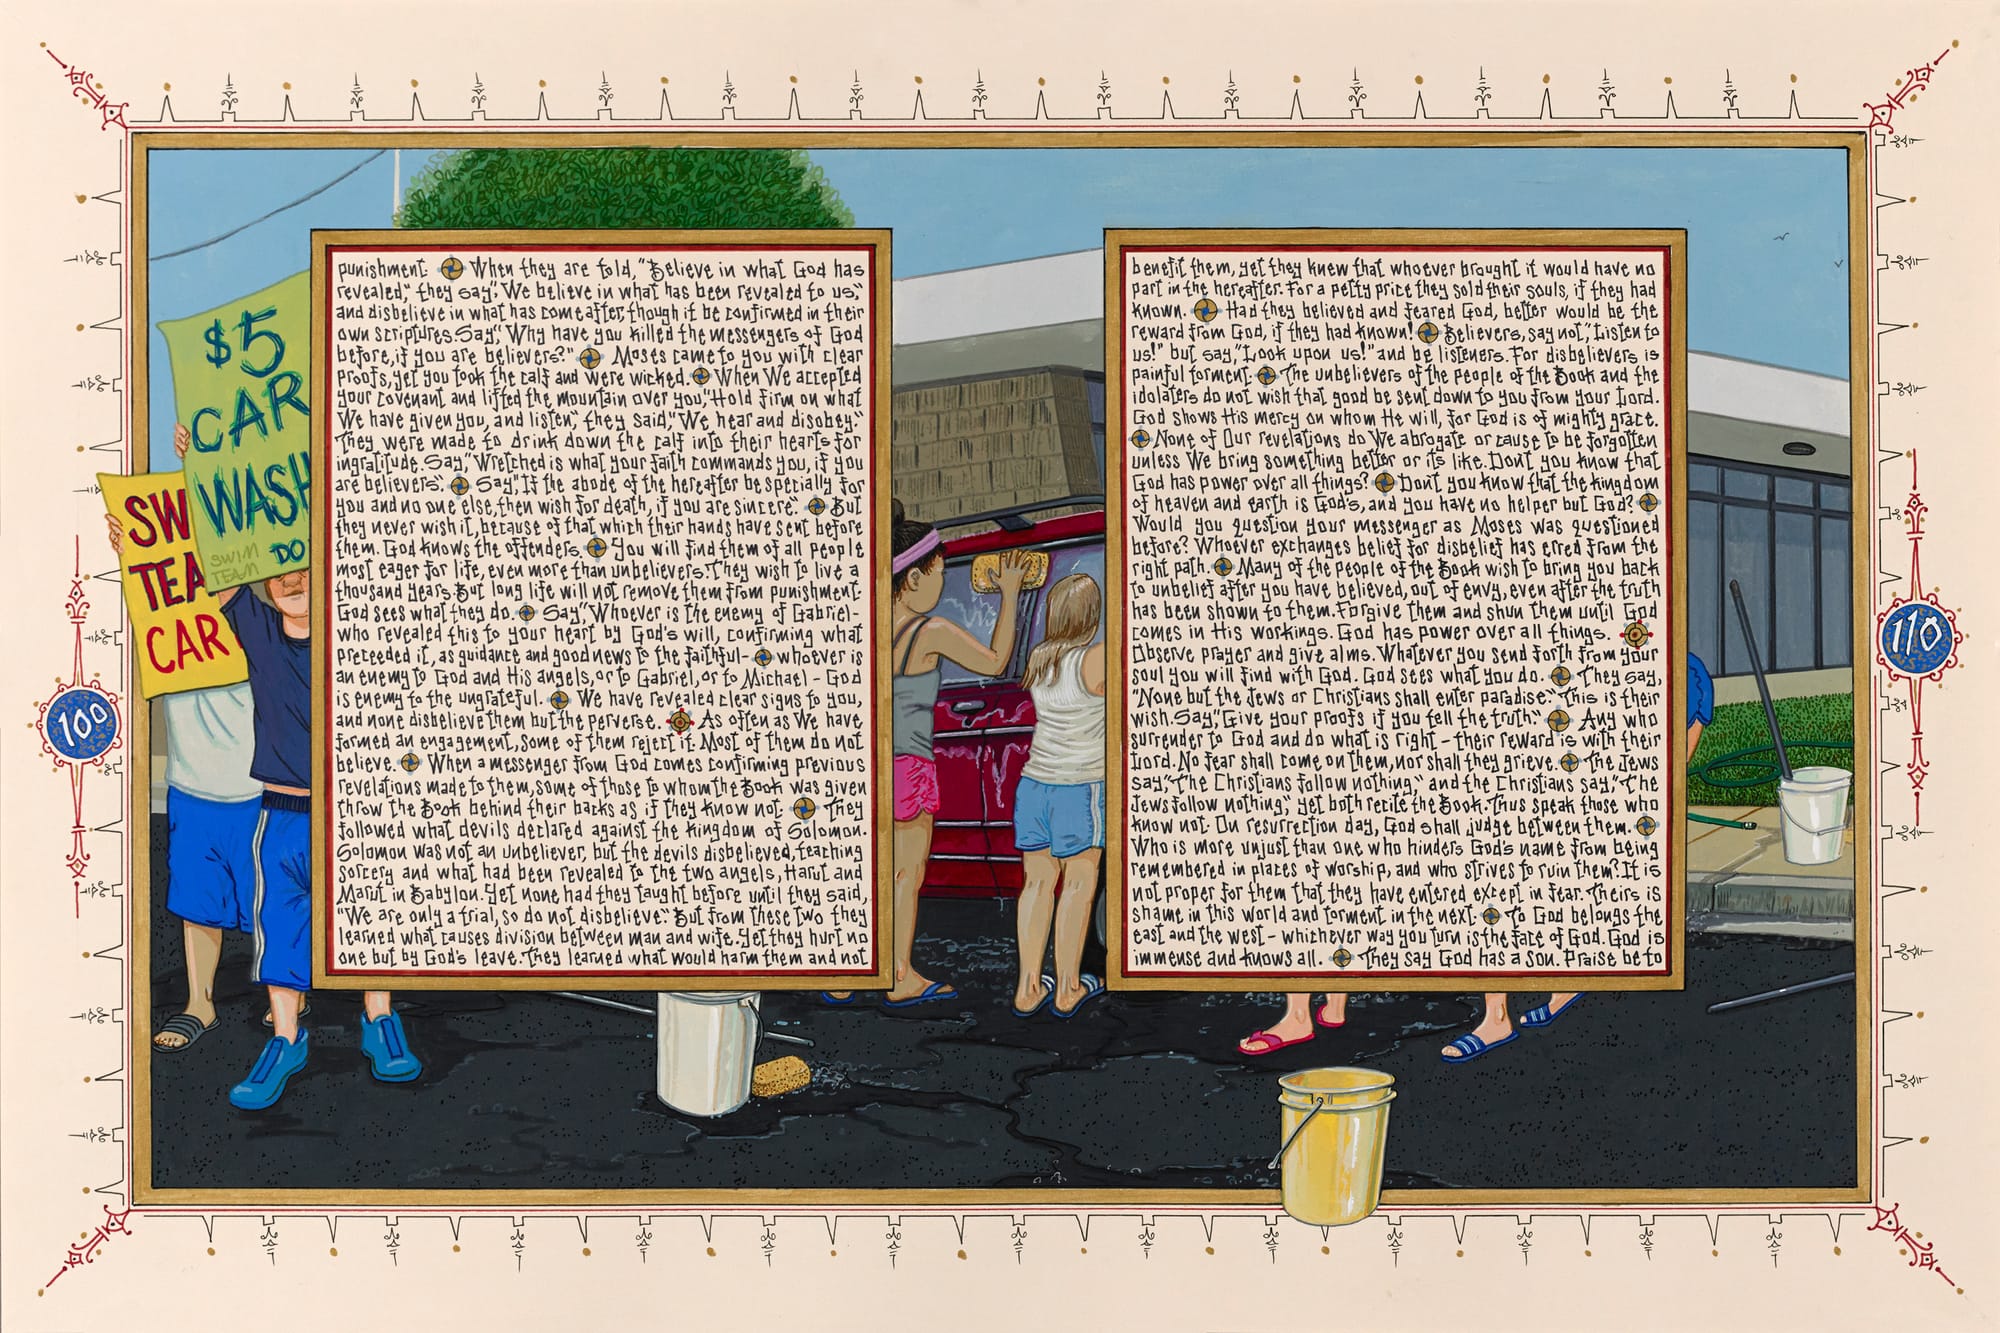 $5
CAR
WASH
SWIM
TEAM
DO
SW
TEA
CAR
100
punishment. When they are told, "Believe in what God has
revealed," they say, "We believe in what has been revealed to us,"
and disbelieve in what has come after, though it be confirmed in their
own scriptures. Say, "Why have you killed the messengers of God
before, if you are believers?" Moses came to you with clear
proofs, yet you took the calf and were wicked. When We accepted
your covenant and lifted the mountain over you, "Hold firm on what
We have given you, and listen," they said, "We hear and disobey."
They were made to drink down the calf into their hearts for
ingratitude. Say, "Wretched is what your faith commands you, if you
are believers." Say, "If the abode of the hereafter be specially for
you and no one else, then wish for death, if you are sincere." But
they never wish it, because of that which their hands have sent before
them. God knows the offenders. You will find them of all people
most eager for life, even more than unbelievers. They wish to live a
thousand years. But long life will not remove them from punishment.
God sees what they do. Say, "Whoever is the enemy of Gabriel-
who revealed this to your heart by God's will, confirming what
preceeded it, as guidance and good news to the faithful- whoever is
an enemy to God and His angels, or to Gabriel, or to Michael - God
is enemy to the ungrateful. We have revealed clear signs to you,
and none disbelieve them but the perverse. As often as We have
formed an engagement, some of them reject it. Most of them do not
believe. When a messenger from God comes confirming previous
revelations made to them, some of those to whom the Book was given
throw the Book behind their backs as if they know not. They
followed what devils declared against the kingdom of Solomon.
Solomon was not an unbeliever, but the devils disbelieved, teaching
sorcery and what had been revealed to the two angels, Harut and
Marut in Babylon. Yet none had they taught before until they said,
"We are only a trial, so do not disbelieve." But from these two they
learned what causes division between man and wife. Yet they hurt no
one but by God's leave. They learned what would harm them and not
benefit them, yet they knew that whoever brought it would have no
part in the hereafter. For a petty price they sold their souls, if they had
known. Had they believed and feared God, better would be the
reward from God, if they had known! Believers, say not, "Listen to
us!" but say, "Look upon us!" and be listeners. For disbelievers is
painful torment. The unbelievers of the people of the Book and the
idolaters do not wish that good be sent down to you from your Lord.
God shows His mercy on whom He will, for God is of mighty grace.
None of Our revelations do We abrogate or cause to be forgotten
unless We bring something better or its like. Don't you know that
God has power over all things? Don't you know that the kingdom
of heaven and earth is God's, and you have no helper but God?
Would you question your messenger as Moses was questioned
before? Whoever exchanges belief for disbelief has erred from the
right path. Many of the people of the Book wish to bring you back
to unbelief after you have believed, out of envy, even after the truth
has been shown to them. Forgive them and shun them until God
comes in His workings. God has power over all things.
Observe prayer and give alms. Whatever you send forth from your
soul you will find with God. God sees what you do. They say,
"None but the Jews or Christians shall enter paradise." This is their
wish. Say, "Give your proofs if you tell the truth." Any who
surrender to God and do what is right - their reward is with their
Lord. No fear shall come on them, nor shall they grieve. The Jews
say, "The Christians follow nothing," and the Christians say, "The
Jews follow nothing," yet both recite the Book. Thus speak those who
know not. On resurrection day, God shall judge between them.
Who is more unjust than one who hinders God's name from being
remembered in places of worship, and who strives to ruin them? It is
not proper for them that they have entered except in fear. Theirs is
shame in this world and torment in the next. To God belongs the
east and the west - whichever way you turn is the face of God. God is
immense and knows all. They say God has a son. Praise be to
110